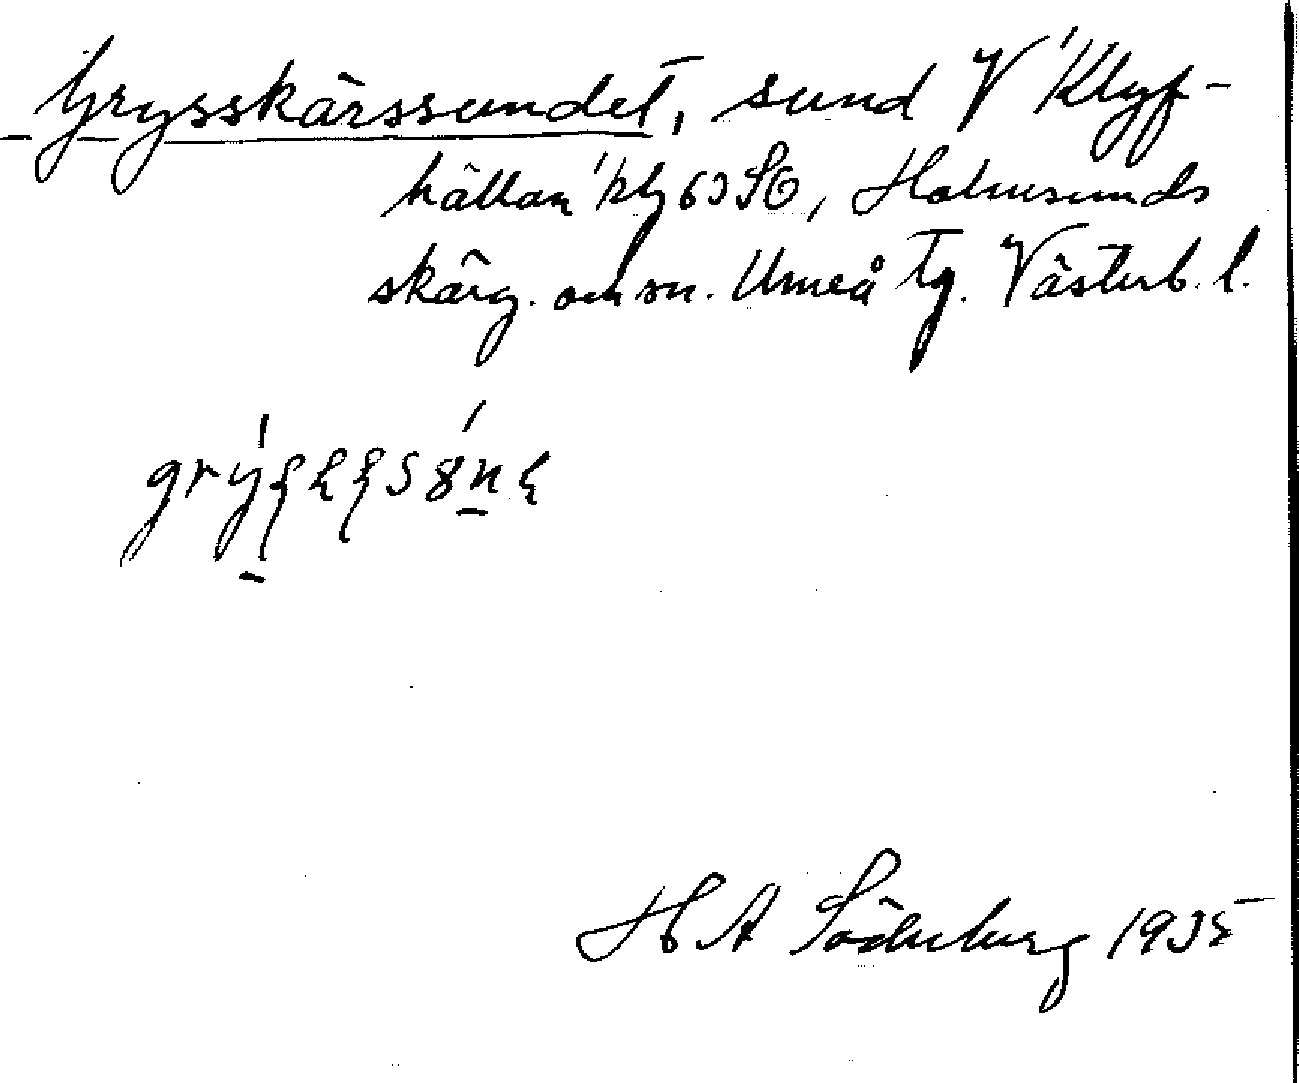 Grysskärssundet, sund V 'Klyf-
hällan' kbl 63 SO, Holmsunds
skärg. och sn. Umeå tg. Västerb. l.
H A Söderberg 1935